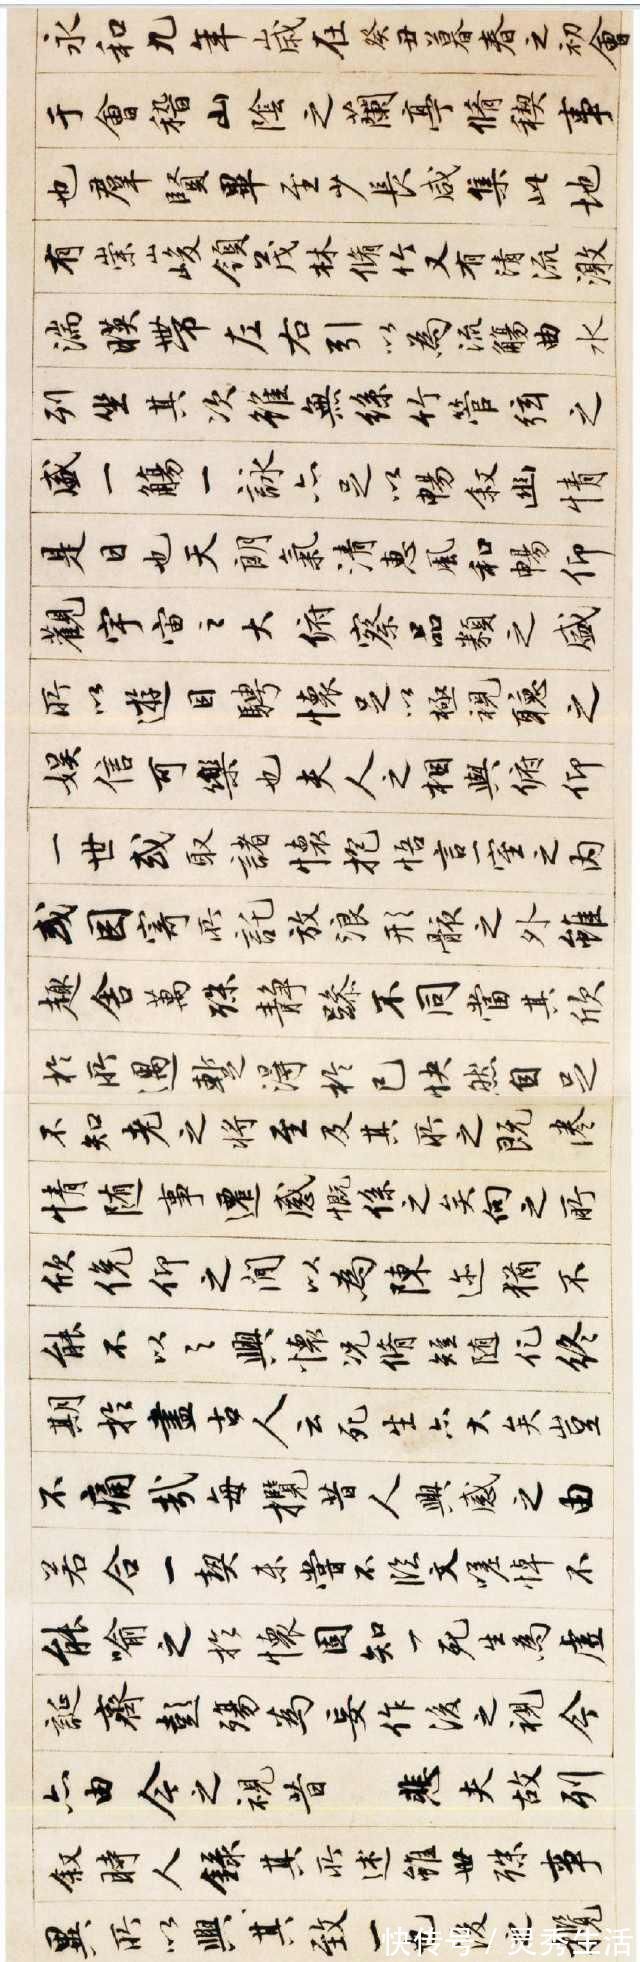 永和九年歲在癸丑暮春之初會
于會稽山陰之蘭亭脩稧事
也羣賢畢至少長咸集此地
有崇山峻領茂林脩竹又有清流激
湍暎帶左右引以為流觴曲水
列坐其次雖無絲竹管弦之
盛一觴一詠亦足以暢敘幽情
是日也天朗氣清惠風和暢仰
觀宇宙之大俯察品類之盛
所以遊目騁懷足以極視聽之
娛信可樂也夫人之相與俯仰
一世或取諸懷抱悟言一室之內
或因寄所託放浪形骸之外雖
趣舍萬殊靜躁不同當其欣
於所遇蹔得於己快然自足
不知老之將至及其所之既惓
情隨事遷感慨係之矣向之所
欣俛仰之閒以為陳迹猶不
能不以之興懷況脩短隨化終
期於盡古人云死生亦大矣豈
不痛哉每攬昔人興感之由
若合一契未嘗不臨文嗟悼不
能喻之於懷固知一死生為虛
誕齊彭殤為妄作後之視今
亦由今之視昔 悲夫故列
敘時人錄其所述雖世殊事
異所以興其致一
快传号 / 灵秀生活